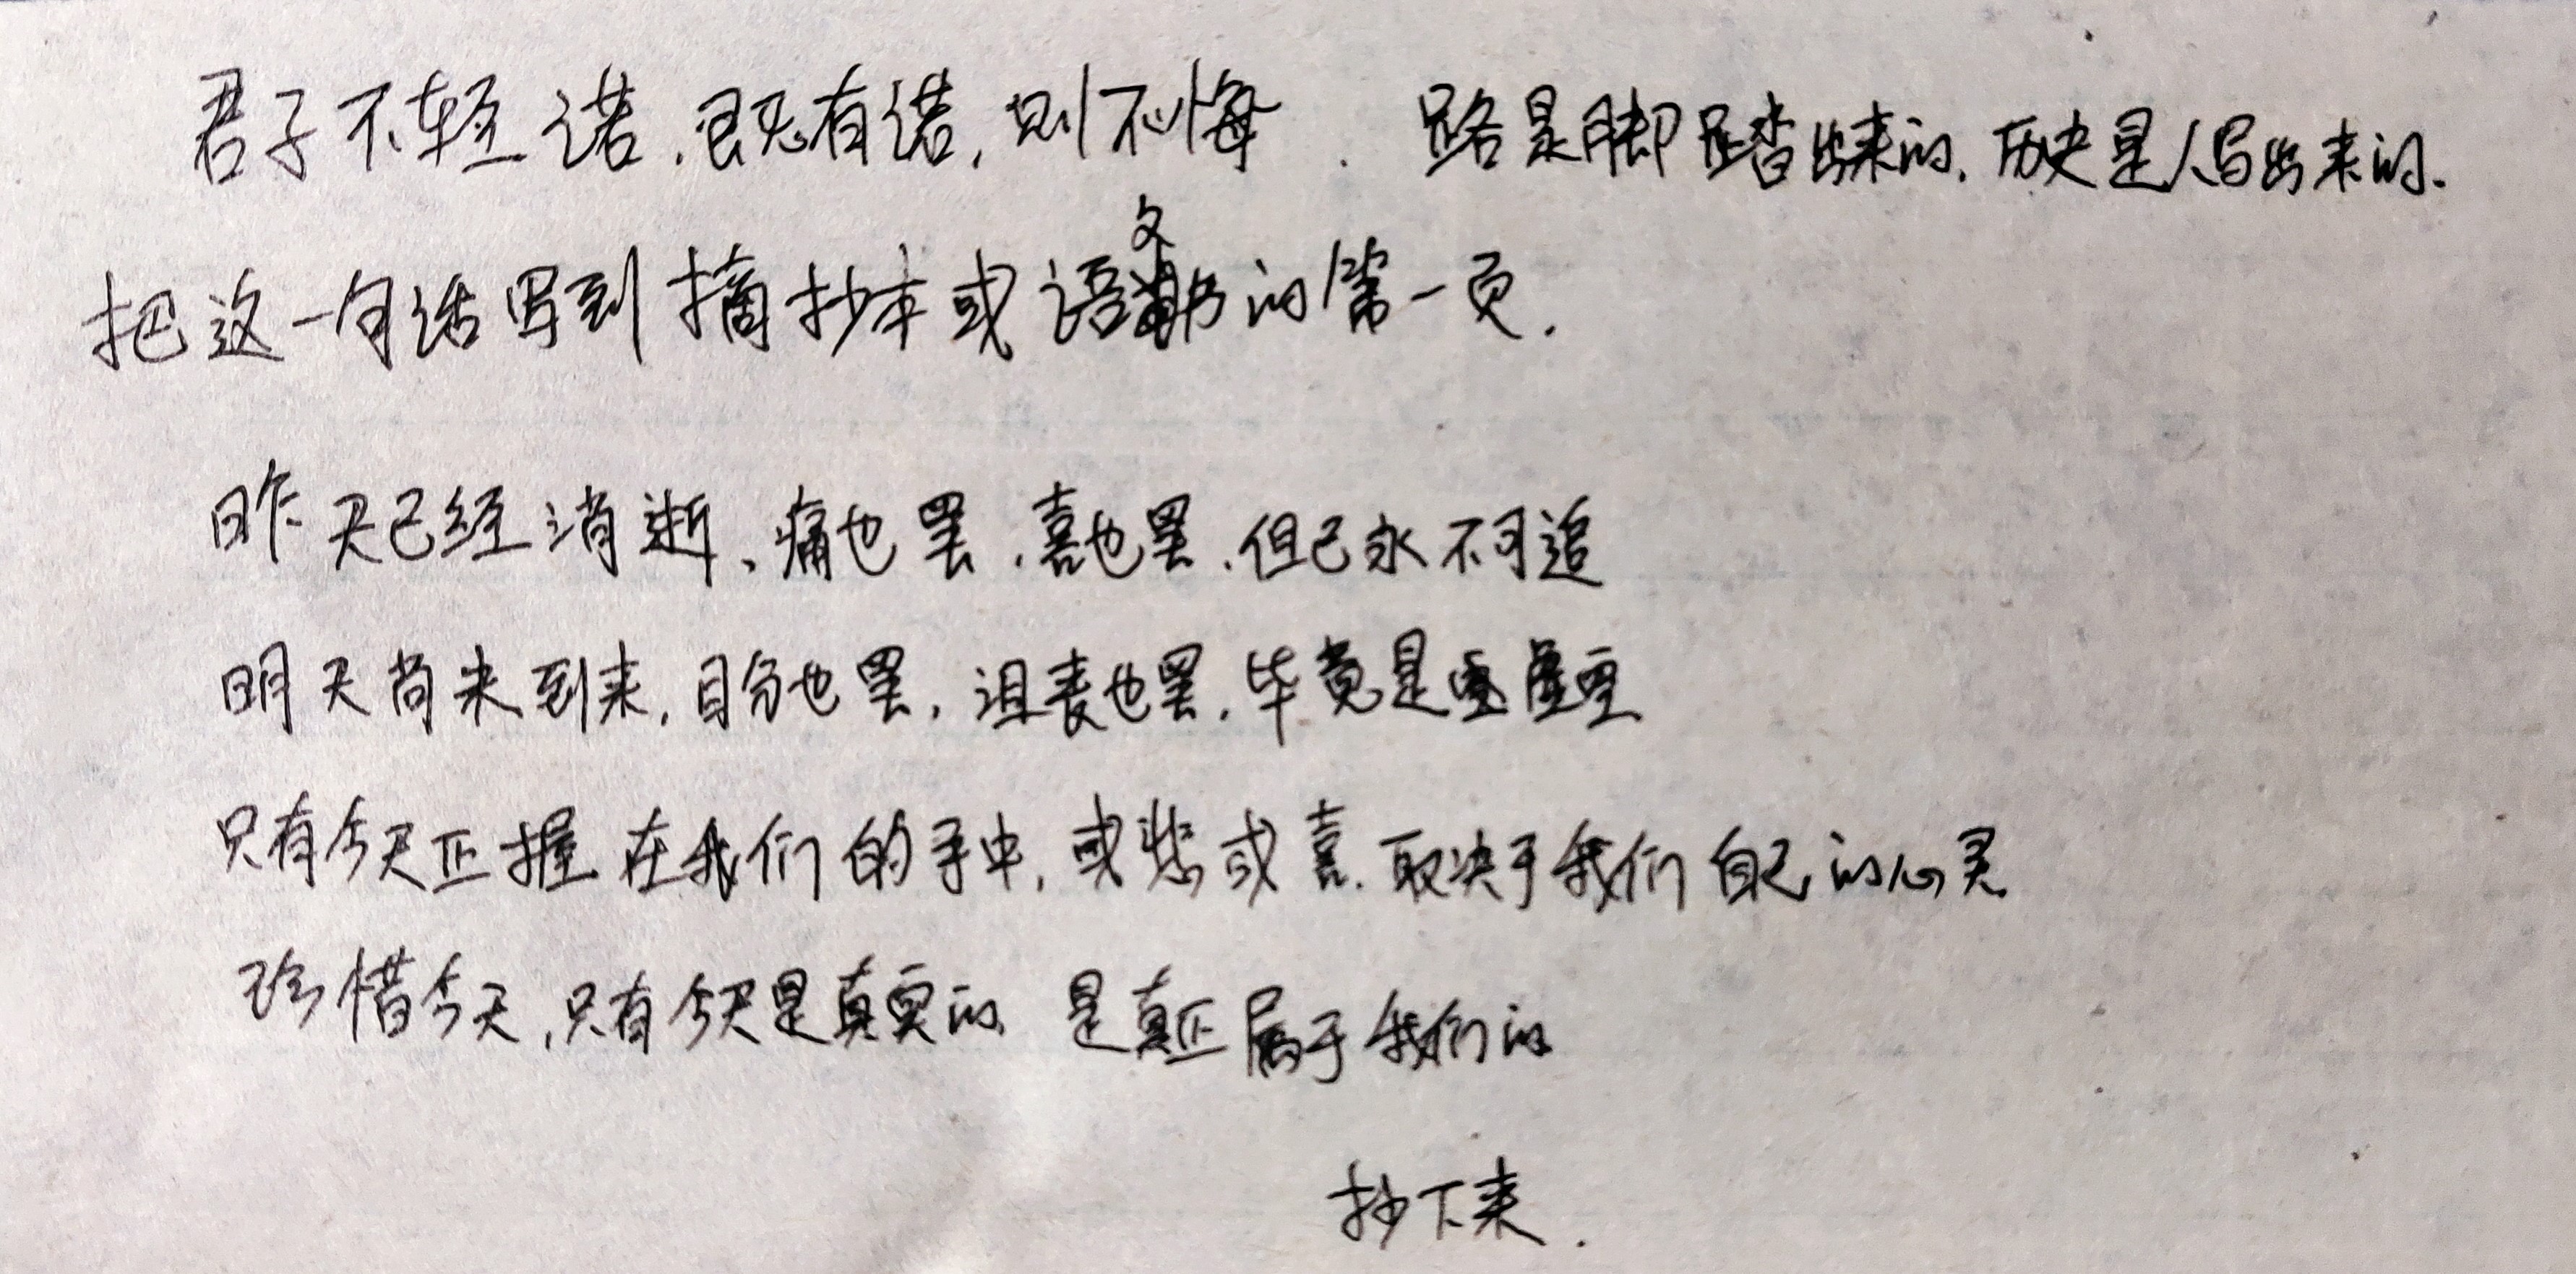 君子不轻诺.既有诺,则不悔. 路是脚踏出来的.历史是人写出来的.
把这一句话写到摘抄本或语文书的第一页.
昨天已经消逝、痛也罢.喜也罢.但已永不可追
明天尚未到来,自负也罢.沮丧也罢.毕竟是虚
只有今天正握在我们的手中,或悲或喜.取决于我们自己的心灵
珍惜今天,只有今天是真实的 是真正属于我们的
抄下来.